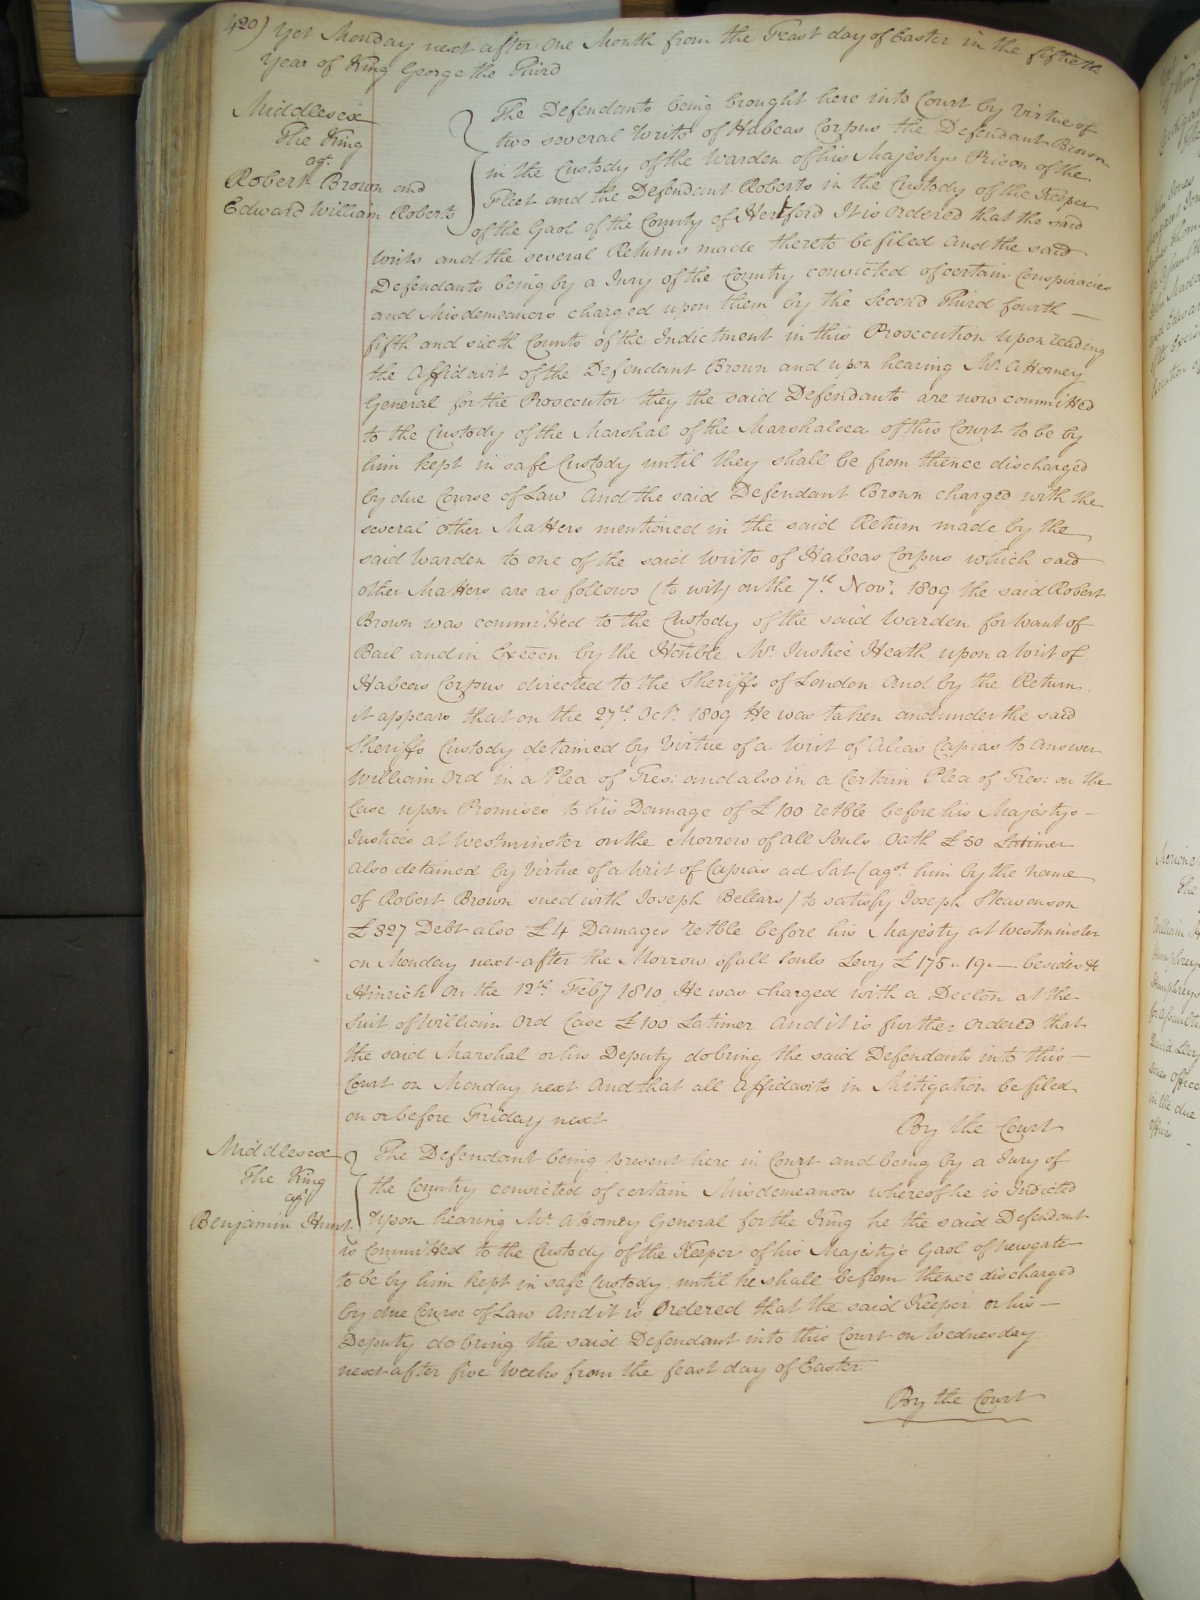 420) Yet Monday next after one Month from the Feast day of Easter in the fiftieth
Year of King George the Third
Middlesex
The King
agt.
Robert Brown and
Edward William Roberts
The Defendants being brought here into Court by virtue of
two several Writs of Habeas Corpus the Defendant Brown
in the Custody of the Warden of his Majestys Prison of the
Fleet and the Defendant Roberts in the Custody of the Keeper
of the Gaol of the County of Hertford It is ordered that the said
Writs and the several Returns made thereto be filed And the said
Defendants being by a Jury of the Country convicted of certain Conspiracies
and Misdemeanors charged upon them by the Second Third fourth —
fifth and sixth Counts of the Indictment in this Prosecution Upon reading
the Affidavit of the Defendant Brown and upon hearing Mr. Attorney
General for the Prosecutor they the said Defendants are now committed
to the Custody of the Marshal of the Marshalsea of this Court to be by
him kept in safe Custody until they shall be from thence discharged
by due Course of Law And the said Defendant Brown charged with the
several other Matters mentioned in the said Return made by the
said Warden to one of the said Writs of Habeas Corpus which said
other Matters are as follows (to wit) on the 7th. Novr. 1809 the said Robert
Brown was committed to the Custody of the said Warden for want of
Bail and in Execon by the Honble Mr. Justice Heath upon a Writ of
Habeas Corpus directed to the Sheriffs of London And by the Return
it appears that on the 27th. Octr. 1809 He was taken and under the said
Sheriffs Custody detained by Virtue of a Writ of Alias Capias to answer
William Ord in a Plea of Tres: and also in a Certain Plea of Tres: on the
Case upon Promises to his Damage of £100 retble before his Majestys —
Justices at Westminster on the Morrow of all Souls Oath £50 Latimer
Also detained by Virtue of a Writ of Capias ad Sat (agst. him by the name
of Robert Brown sued with Joseph Bellars) to satisfy Joseph Steavenson
£327 Debt also £4 Damages retble before his Majesty at Westminster
on Monday next after the Morrow of all Souls Levy £175 .. 19 .. — besides &
Hinrich On the 12th. Feby 1810 He was charged with a Declon at the
Suit of William Ord Case £100 Latimer And it is further Ordered that
the said Marshal or his Deputy do bring the said Defendants into this —
Court on Monday next And that all Affidavits in Mitigation be filed
on or before Friday next
By the Court
Middlesex
The King
agt.
Benjamin Hunt
The Defendant being present here in Court and being by a Jury of
the Country convicted of certain Misdemeanors whereof he is Indicted
Upon hearing Mr. Attorney General for the King he the said Defendant
is Committed to the Custody of the Keeper of his Majesty's Gaol of Newgate
to be by him kept in safe Custody until he shall be from thence discharged
by due Course of Law And it is Ordered that the said Keeper or his —
Deputy do bring the said Defendant into this Court on Wednesday
next after five Weeks from the feast day of Easter
By the Court